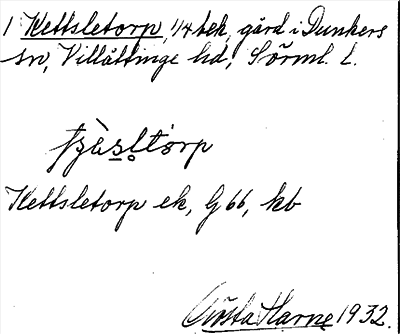 1 Kettsletorp, 1/4 tek, gård i Dunkers
sn, Villåttinge hd, Sörml. l.
Kettsletorp ek, G 66, kb
Gösta Harne 1932.